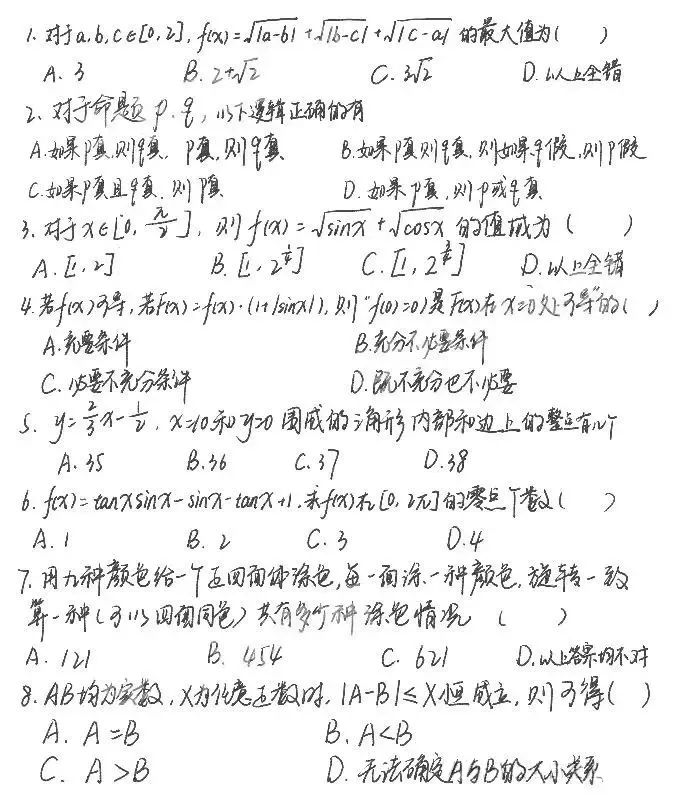 1. 对于a,b,c∈[0,2], f(x)=√|a-b|+√|b-c|+√|c-a| 的最大值为( )
A. 3 B. 2+√2 C. 3√2 D. 以上全错
2. 对于命题 p、q, 以下逻辑正确的有
A. 如果p真,则q真, p真,则q真 B. 如果p真则q真,则如果q假,则p假
C. 如果p真且q真,则p真 D. 如果p真,则p或q真
3. 对于x∈[0, π/2], 则f(x)=√sinx+√cosx 的值域为( )
A. [1, 2] B. [1, 2^] C. [1, 2^] D. 以上全错
4. 若f(x)可导, 若F(x)=f(x)·(1+|sinx|), 则"f(0)=0"是F(x)在x=0处可导"的( )
A. 充要条件 B. 充分不必要条件
C. 必要不充分条件 D. 既不充分也不必要
5. y=2/3x-1/2, x=10和y=0 围成的三角形内部和边上的整点有几个
A. 35 B. 36 C. 37 D. 38
6. f(x)=tanxsinx-sinx-tanx+1, 求f(x)在[0, 2π]的零点个数( )
A. 1 B. 2 C. 3 D. 4
7. 用九种颜色给一个正四面体涂色, 每一面涂一种颜色, 旋转一致
算一种(可以四面同色) 共有多少种涂色情况 ( )
A. 121 B. 454 C. 621 D. 以上答案均不对
8. AB均为实数, X为任意正数时, |A-B|≤X恒成立, 则可得( )
A. A=B B. A<B
C. A>B D. 无法确定A与B的大小关系